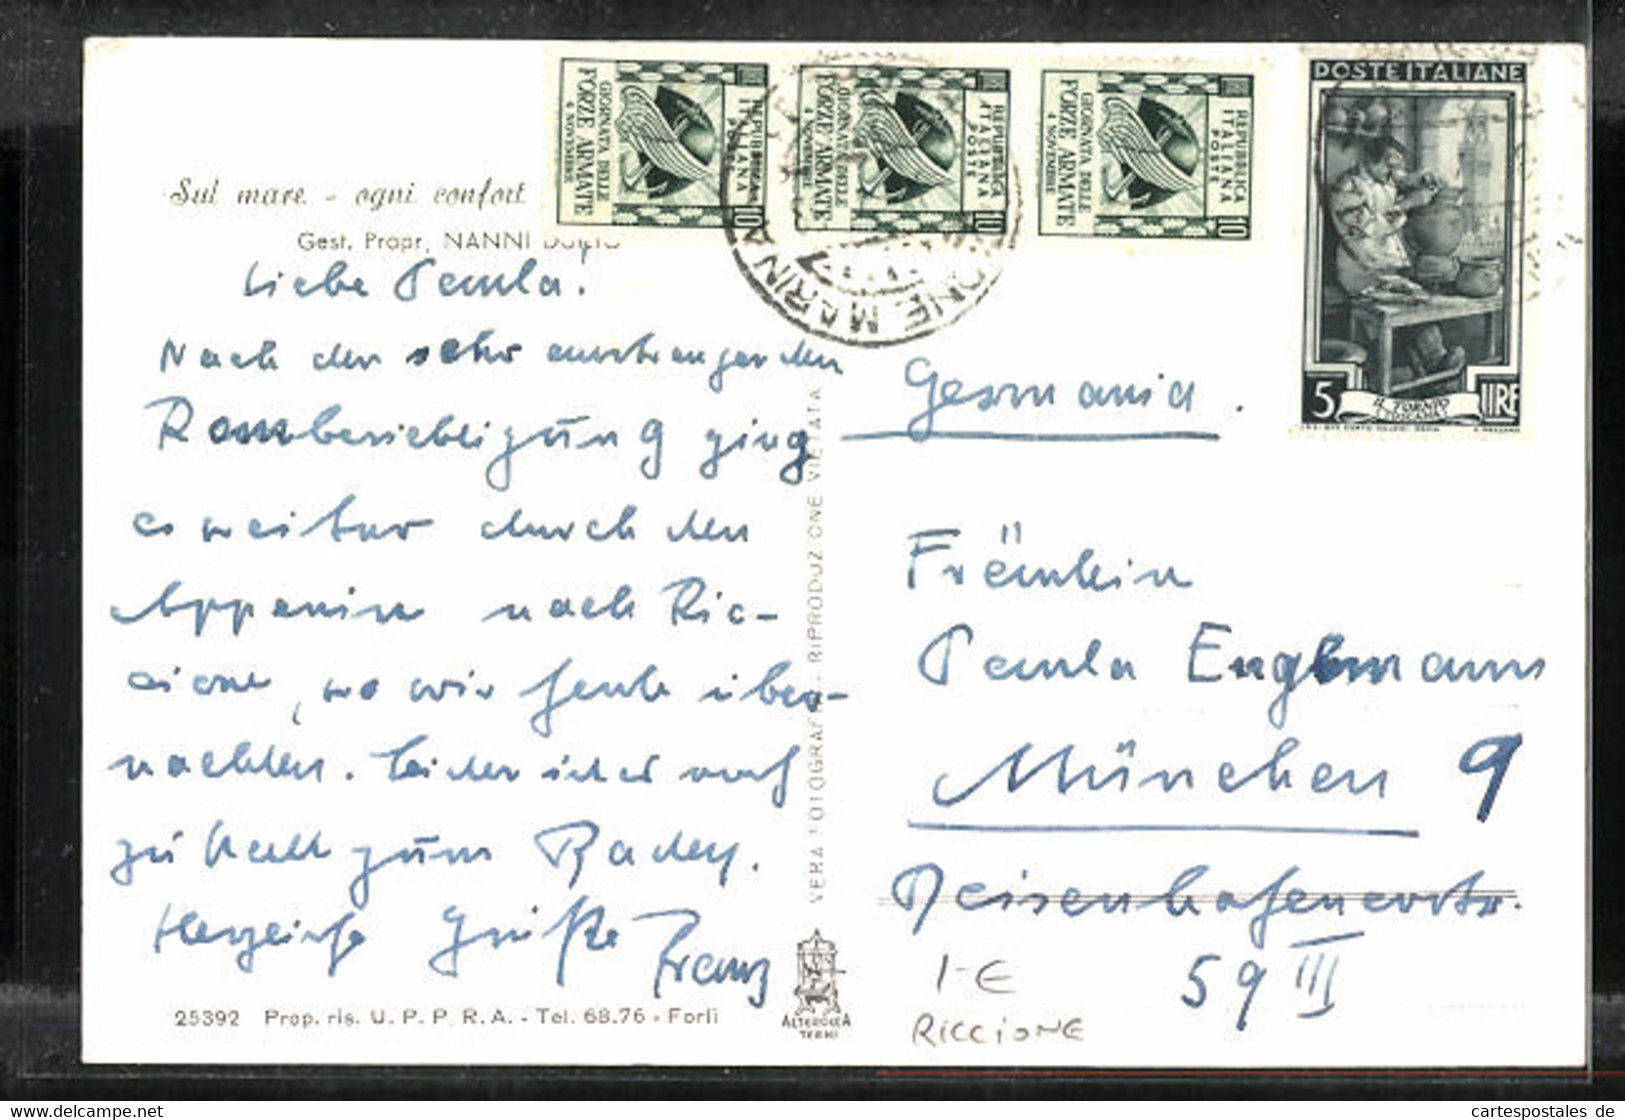 Sul mare - ogni confort
Gest. Propr. NANNI
Liebe Paula.
Nach der sehr anstrengenden
Rombesichtigung ging
es weiter durch den
Appenin nach Ric-
cione, wo wir heute über-
nachten. Leider ist es noch
zu kalt zum Baden.
Herzliche Grüße Franz
25392 Prop. ris. U. P. P. R. A. - Tel. 68.76 - Forlì
VERA FOTOGRAFIA RIPRODUZIONE VIETATA
ALTEROCCA
TERNI
REPUBBLICA
ITALIANA
POSTE
GIORNATA DELLE
FORZE ARMATE
4 NOVEMBRE
10
REPUBBLICA
ITALIANA
POSTE
GIORNATA DELLE
FORZE ARMATE
4 NOVEMBRE
10
REPUBBLICA
ITALIANA
POSTE
GIORNATA DELLE
FORZE ARMATE
4 NOVEMBRE
10
IONE MARINA
POSTE ITALIANE
IL TORNIO
5 LIRE
Germania.
Fräulein
Paula Englmann
München 9
Deisenhofenerstr.
59 III
1-€
RICCIONE
www.delcampe.net
cartespostales de